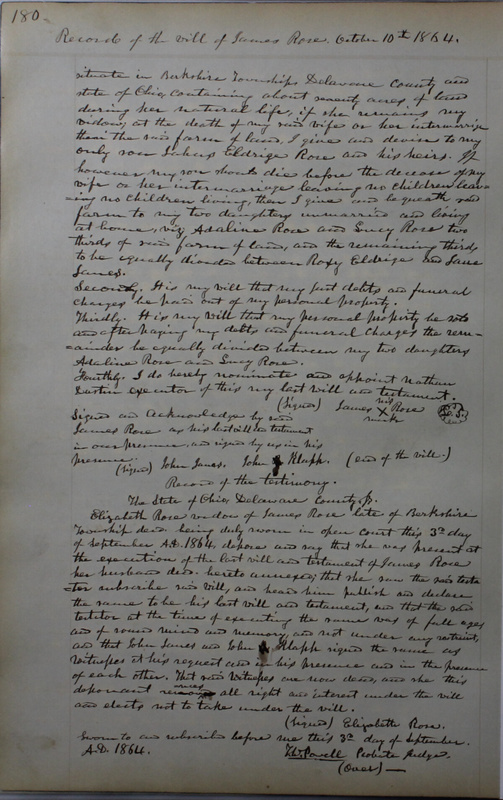 180
Record of the will of James Rose. October 10th 1864.
situate in Berkshire Township, Delaware County and
state of Ohio, containing about seventy acres of land
during her natural life, if she remains my
widow, at the death of my said wife or her intermarriage
then the said farm of land, I give and devise to my
only son Eldrige Rose and his heirs. If
however my son should die before the decease of my
wife or her intermarriage leaving no Children leav-
-ing no children living, then I give and bequeath said
farm to my two daughters unmarried and living
at home, viz, Adaline Rose and Lucy Rose two
thirds of said farm of land, and the remaining thirds
to be equally divided between Roxy Eldrige and Jane
Janes.
Second. It is my will that my just debts and funeral
charges be paid out of my personal property.
Thirdly. It is my will that my personal property be sold
and after paying my debts and funeral charges the rem-
-ainder be equally divided between my two daughters
Adaline Rose and Lucy Rose.
Fourthly. I do hereby nominate and appoint Nathan
Dustin executor of this my last will and testament.
(Signed) James his X mark Rose
Signed and Acknowledge by said
James Rose as his last will and testament
in our presence, and signed by us in his
presence.
(signed) John Janes. John Klapp. (end of the will.)
Record of the testimony.
The State of Ohio, Delaware County, ss.
Elizabeth Rose widow of James Rose late of Berkshire
Township decd. being duly sworn in open court this 3rd day
of September A.D. 1864, depose and say that she was present at
the execution of the last will and testament of James Rose
her husband decd. hereto annexed; that she saw the said testa
-tor subscribe said will, and heard him publish and declare
the same to be his last will and testament, and that the said
testator at the time of executing the same was of full age,
and of sound mind and memory, and not under any restraint,
and that John Janes and John Klapp signed the same as
witnesses at his request and in his presence and in the presence
of each other. That said witnesses are now dead, and she this
deponant all right and interest under the will
and elects not to take under the will.
(Signed) Elizabeth Rose.
Sworn to and subscribed before me this 3rd day of September.
A.D. 1864.
Thos. Powell Probate Judge.
(Over)